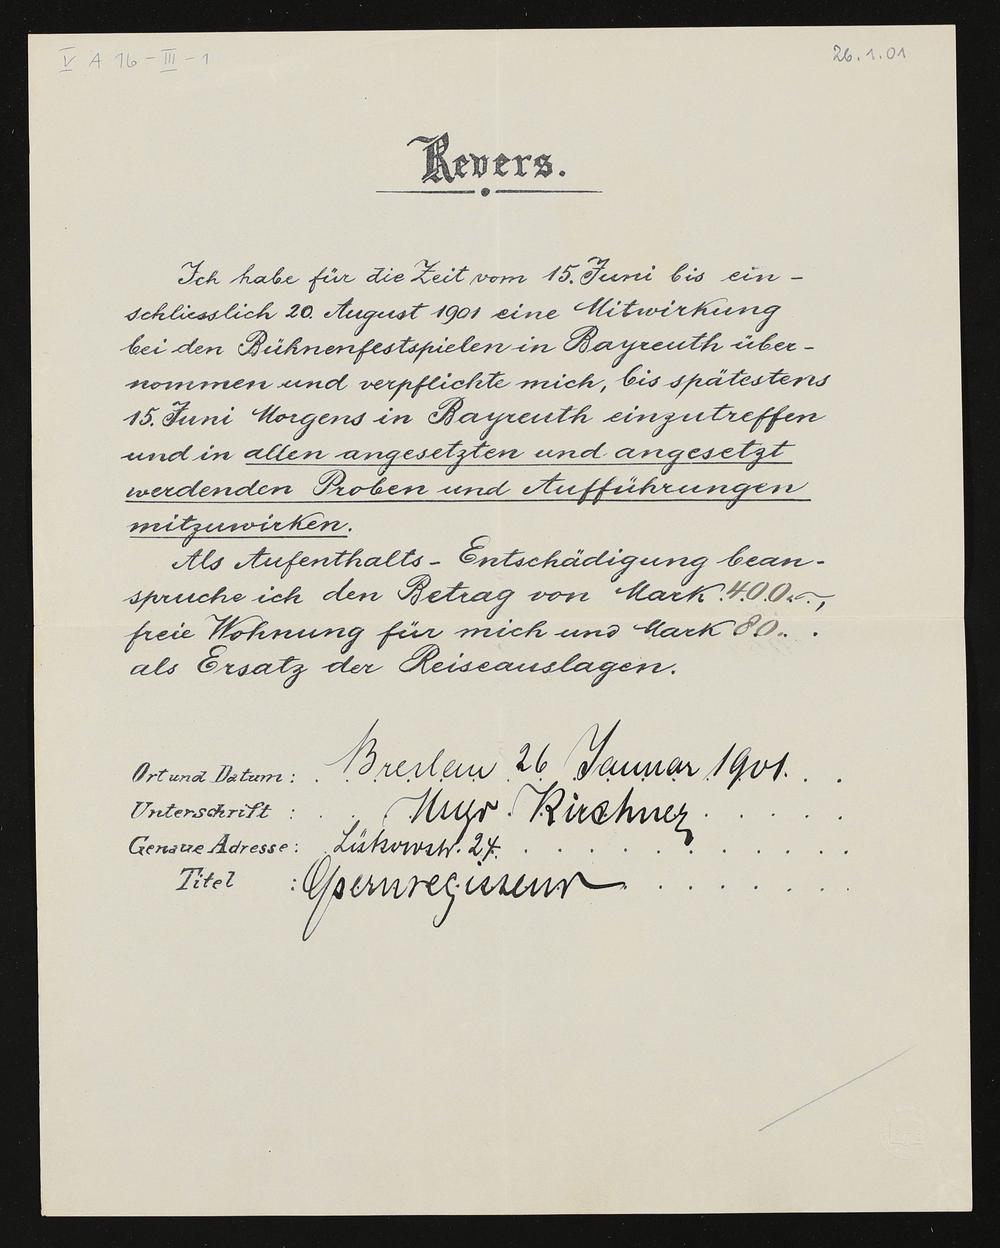 V A 16 - III - 1
26.1.01
Revers.
Ich habe für die Zeit vom 15. Juni bis ein-
schliesslich 20. August 1901 eine Mitwirkung
bei den Bühnenfestspielen in Bayreuth über-
nommen und verpflichte mich, bis spätestens
15. Juni Morgens in Bayreuth einzutreffen
und in allen angesetzten und angesetzt
werdenden Proben und Aufführungen
mitzuwirken.
Als Aufenthalts-Entschädigung bean-
spruche ich den Betrag von Mark 400.-,
freie Wohnung für mich und Mark 80.
als Ersatz der Reiseauslagen.
Ort und Datum: Breslau 26 Januar 1901.
Unterschrift: Hugo Kirchner
Genaue Adresse: 24.
Titel: Opernregisseur